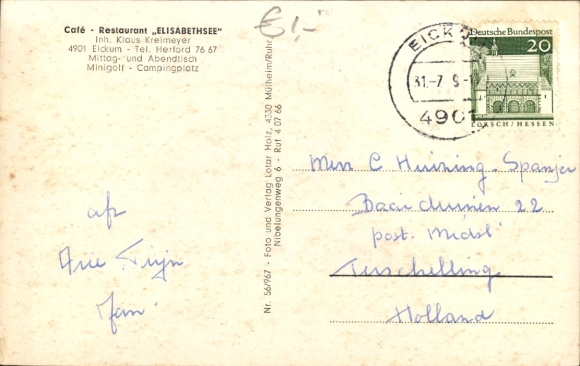 Café - Restaurant „ELISABETHSEE"
Inh. Klaus Kreimeyer
4901 Eickum - Tel. Herford 76 67
Mittag- und Abendtisch
Minigolf - Campingplatz
€1,-
Nr. 56/967 - Foto und Verlag Lotar Holz, 4330 Mülheim/Ruhr
Nibelungenweg 6 - Ruf 4 07 66
EICK
31.-7
490
Deutsche Bundespost
20
LORSCH/HESSEN
C Huining-Spanjer
22
post.
Terschelling
Holland
afz